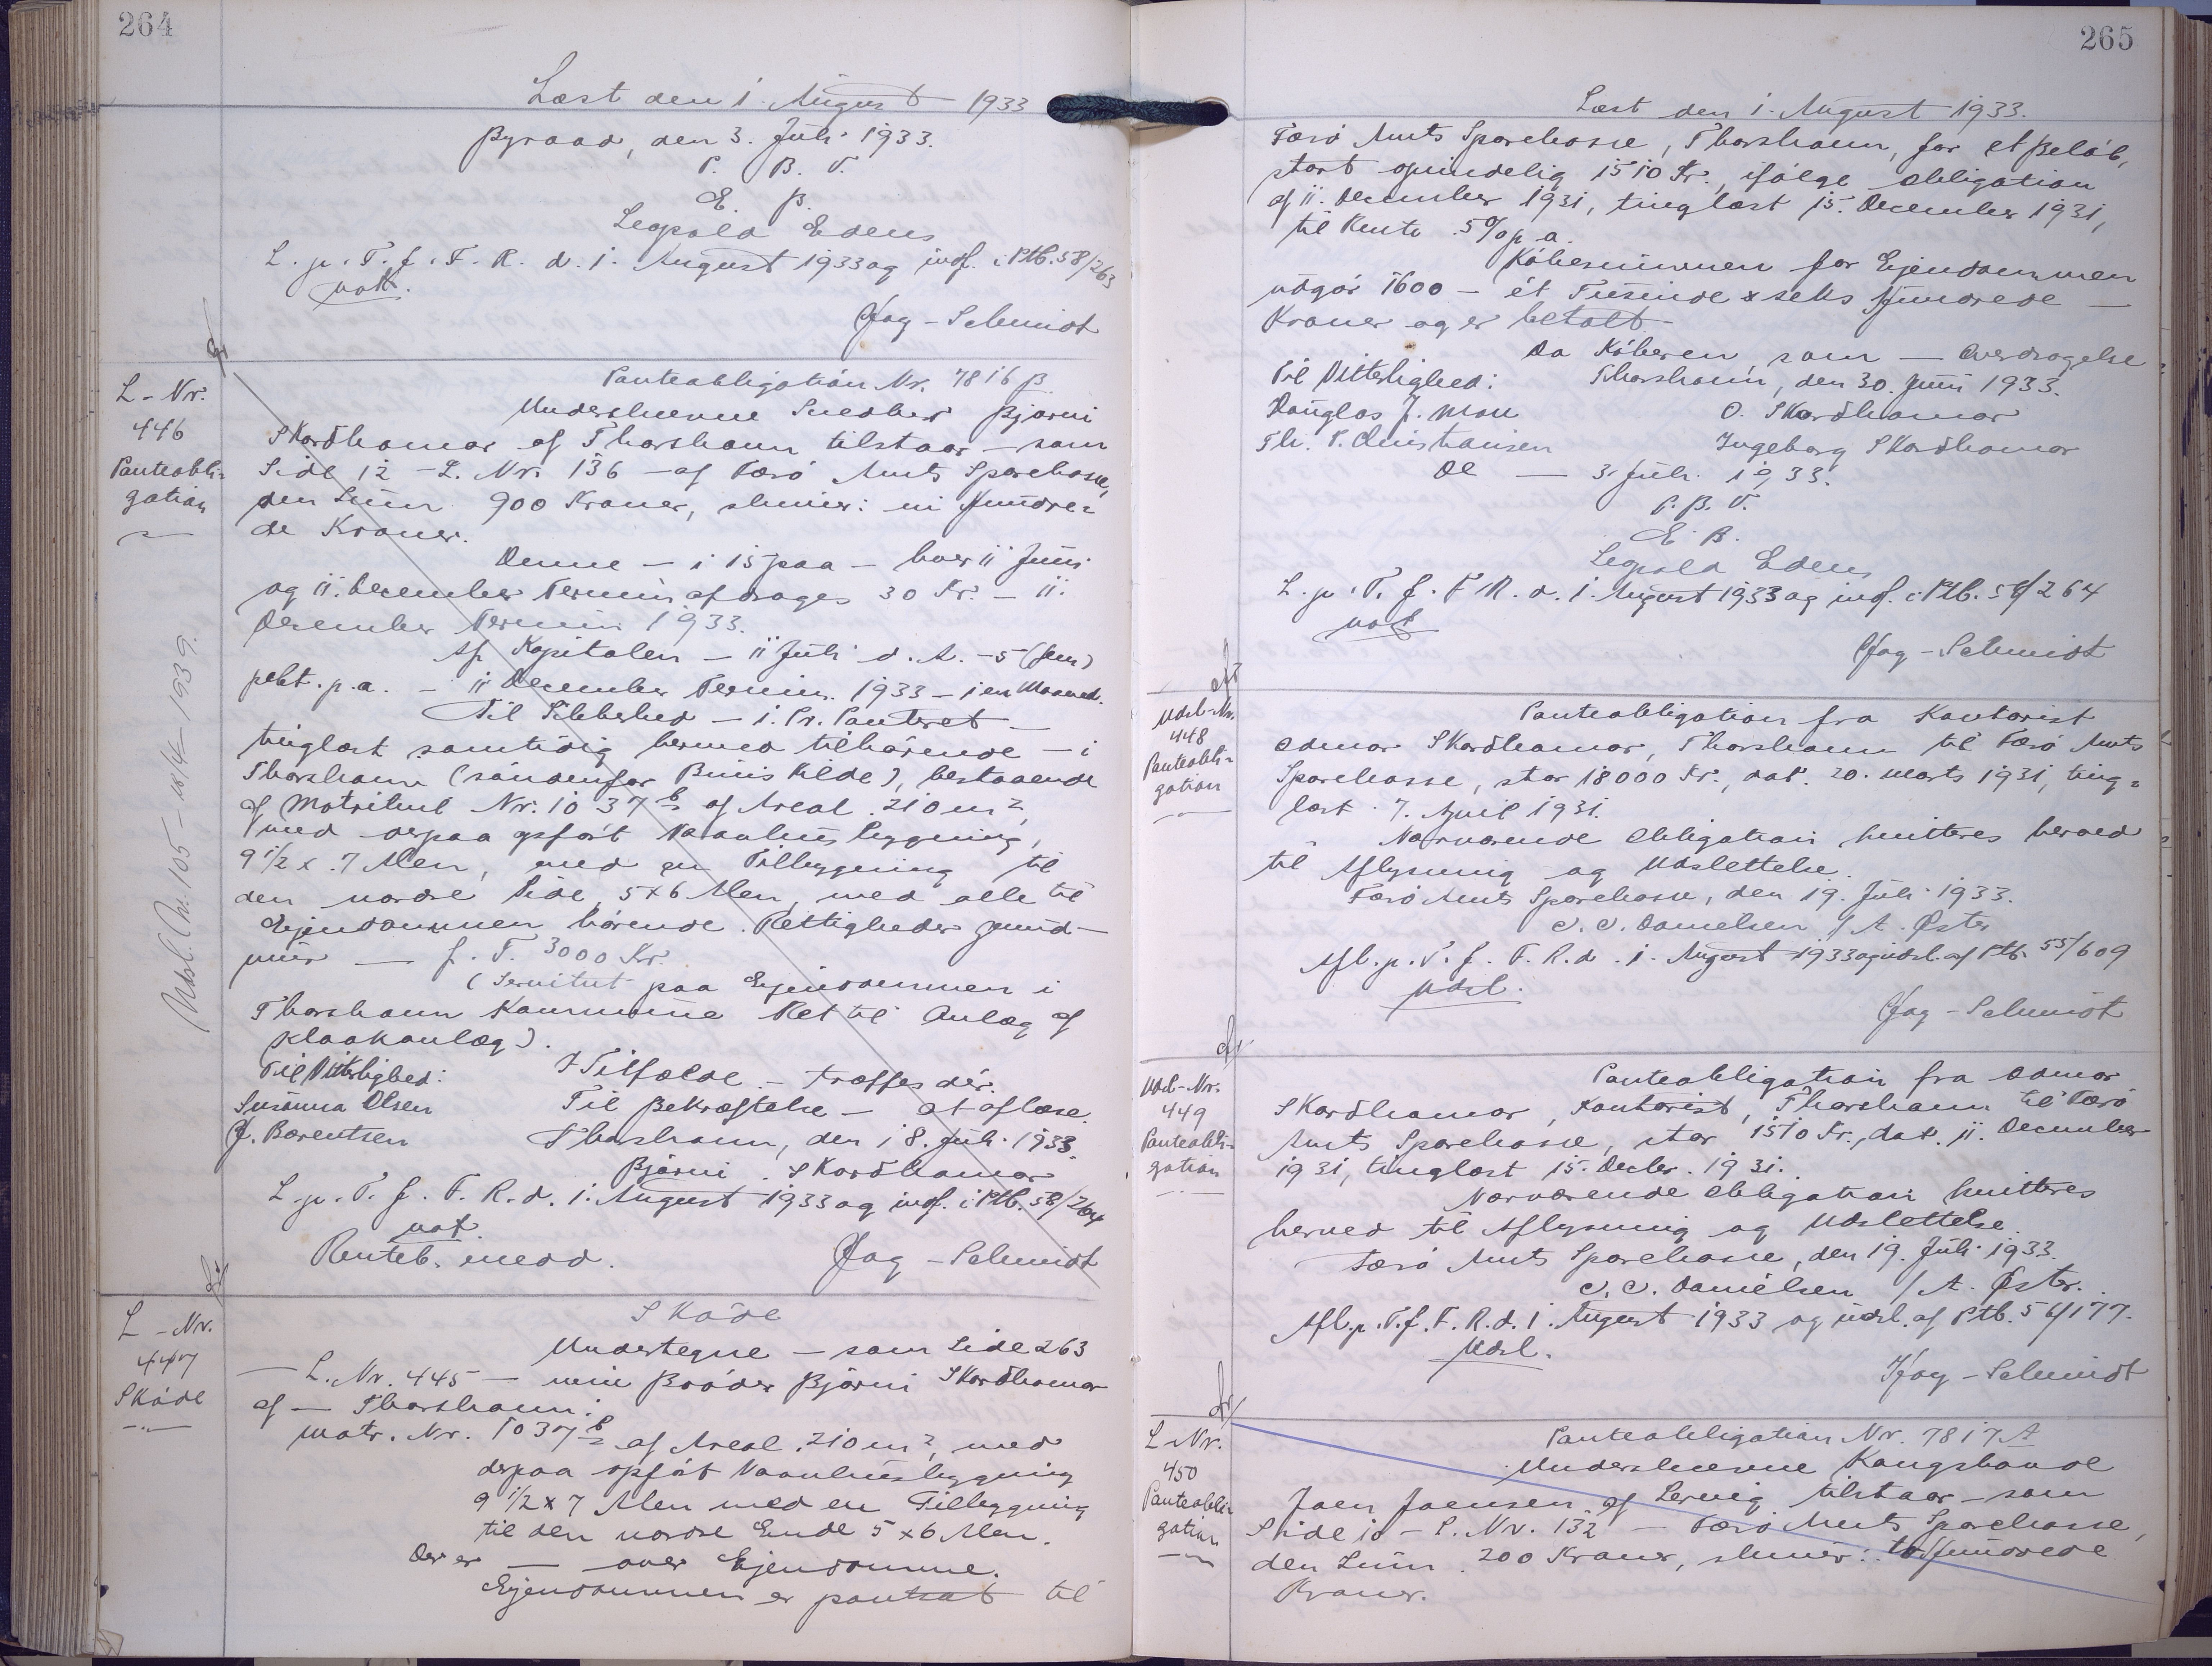 264
Læst den 1. August 1933
Byraad, den 3. Juli 1933.
P. B. V.
E. B.
Leopold Edens
L. p. T. f. F. R. d. 1. August 1933 og indf. i Ptb. 58/263
not.
Hag-Schmidt
L-Nr.
446
Panteobli-
gation
Udsl. Nr. 105 - 18/4 - 1939.
Panteobligation Nr. 7816 B
Underskrevne Snedker Bjarni
Skardhamar af Thorshavn tilstaar - som
Side 12 - L. Nr. 136 - af Færø Amts Sparekasse,
den Sum 900 Kroner, skriver: ni Hundre-
de Kroner.
Denne - i 15 paa - hver 11 Juni
og 11. December Termin afdrages 30 Kr. - 11.
December Termin 1933.
Af Kapitalen - 11 Juli d. A. - 5 (fem)
pCt. p. a. - 11 December Termin 1933 - i en Maaned.
Til Sikkerhed - 1. Pr. Panteret -
tinglæst samtidig hermed tilhørende - i
Thorshavn (søndenfor Búnis Kilde), bestaaende
af Matrikul Nr. 1037 b af Areal 210 m2,
med derpaa opført Vaanhusbygning,
9 1/2 x 7 Alen, med en Tilbygning til
den nordre Side 5x6 Alen, med alle til
Ejendommen hørende Rettigheder grund-
mur - f. T. 3000 Kr.
(Servitut paa Ejendommen i
Thorshavn Kommune Ret til Anlæg af
Kloakanlæg).
Til Vitterlighed: I Tilfælde - træffes dér.
Susanna Olsen Til Bekræftelse - at aflæse.
J. Bærentsen Thorshavn, den 18. Juli 1933.
Bjarni Skardhamar
L. p. T. f. F. R. d. 1. August 1933 og indf. i Ptb. 58/264
not.
Renteb. medd. Hag-Schmidt
L-Nr.
447
Skøde
Skøde
Undertegne - som Side 263
- L. Nr. 445 - min Broder Bjarni Skardhamar
af - Thorshavn:
Matr. Nr. 1037 b af Areal 210 m2, med
derpaa opført Vaanhusbygning
9 1/2 x 7 Alen med en Tilbygning
til den nordre Ende 5x6 Alen.
Der er - over Ejendomme.
Ejendommen er pantsat til
265
Læst den 1. August 1933.
Færø Amts Sparekasse, Thorshavn, for et Beløb,
stort oprindelig 1510 Kr., ifølge Obligation
af 11. December 1931, tinglæst 15. December 1931,
til Rente 5% p. a.
Købesummen for Ejendommen
udgør 1600 - ét Tusinde & seks Hundrede -
Kroner og er betalt
Da Køberen, som - Overdragelse
Til Vitterlighed: Thorshavn, den 30. Juni 1933.
Douglas J. Mou O. Skardhamar
Th. P. Christiansen Ingeborg Skardhamar
De - 3. Juli 1933.
P. B. V.
E. B.
Leopold Edens
L. p. T. f. F. R. d. 1. August 1933 og indf. i Ptb. 58/264
not
Hag-Schmidt
Udsl-Nr.
448
Panteobli-
gation
Panteobligation fra Kontorist
Odmar Skardhamar, Thorshavn til Færø Amts
Sparekasse, stor 18000 Kr., dat. 20. Marts 1931, ting-
læst 7. April 1931.
Nærværende Obligation kvitteres herved
til Aflysning og Udslettelse.
Færø Amts Sparekasse, den 19. Juli 1933.
C. C. Danielsen / A. Øster
Afl. p. T. f. F. R. d. 1. August 1933 og udsl. af Ptb. 55/609
Udsl.
Hag-Schmidt
Udsl-Nr.
449
Panteobli-
gation
Panteobligation fra Odmar
Skardhamar, Kontorist, Thorshavn til Færø
Amts Sparekasse, stor 1510 Kr., dat. 11. December
1931, tinglæst 15. Decbr. 1931.
Nærværende Obligation kvitteres
herved til Aflysning og Udslettelse.
Færø Amts Sparekasse, den 19. Juli 1933.
C. C. Danielsen / A. Øster.
Afl. p. T. f. F. R. d. 1. August 1933 og udsl. af Ptb. 56/177.
Udsl.
Hag-Schmidt
L-Nr.
450
Panteobli-
gation
Panteobligation Nr. 7817 A
Underskrevne Kongsbonde
Joen Joensen af Lervig tilstaar - som
Side 10 - L. Nr. 132 - Færø Amts Sparekasse,
den Sum 200 Kroner, skriver: to Hundrede
Kroner.